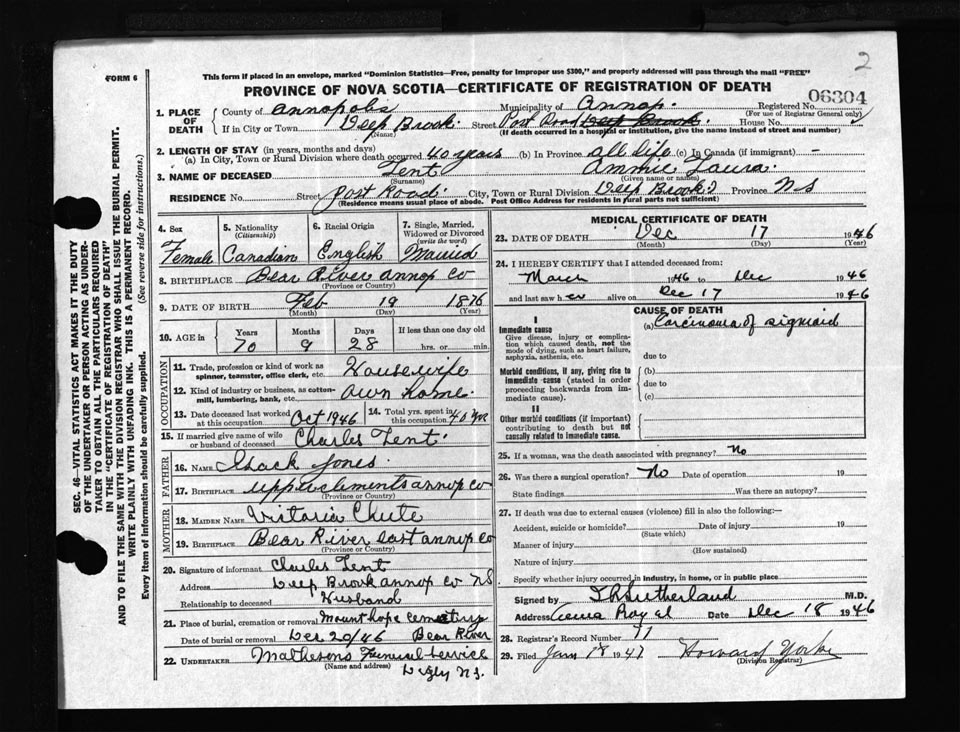 2
FORM 6
This form if placed in an envelope, marked "Dominion Statistics—Free, penalty for improper use $300," and properly addressed will pass through the mail "FREE"
PROVINCE OF NOVA SCOTIA—CERTIFICATE OF REGISTRATION OF DEATH
06304
1. PLACE OF DEATH County of Annapolis Municipality of Annap. Registered No.
(For use of Registrar General only)
If in City or Town Deep Brook. Street Post Road Deep Brook. House No.
(Name) (If death occurred in a hospital or institution, give the name instead of street and number)
2. LENGTH OF STAY (in years, months and days)
(a) In City, Town or Rural Division where death occurred 40 years (b) In Province all life (c) In Canada (if immigrant) —
3. NAME OF DECEASED Tent Annie Laura.
(Surname) (Given name or names)
RESIDENCE No. Street Post Road. City, Town or Rural Division Deep Brook Province NS
(Residence means usual place of abode. Post Office Address for residents in rural parts not sufficient)
4. Sex Female
5. Nationality (Citizenship) Canadian
6. Racial Origin English
7. Single, Married, Widowed or Divorced (write the word) Married
8. BIRTHPLACE Bear River Annap Co
(Province or Country)
9. DATE OF BIRTH Feb 19 1876
(Month) (Day) (Year)
10. AGE in Years 70 Months 9 Days 28 If less than one day old hrs. or min.
OCCUPATION
11. Trade, profession or kind of work as spinner, teamster, office clerk, etc. Housewife
12. Kind of industry or business, as cotton-mill, lumbering, bank, etc. Own home.
13. Date deceased last worked at this occupation Oct 1946 14. Total yrs. spent in this occupation
15. If married give name of wife or husband of deceased Charles Tent.
FATHER
16. NAME Shack Jones.
17. BIRTHPLACE Upper Clements Annap Co
(Province or Country)
MOTHER
18. MAIDEN NAME Victoria Chute
19. BIRTHPLACE Bear River East Annap Co
(Province or Country)
20. Signature of informant Charles Tent
Address Deep Brook Annap Co NS
Relationship to deceased Husband
21. Place of burial, cremation or removal Mount hope Cemetery
Date of burial or removal Dec 20/46 Bear River
22. UNDERTAKER Mathesons Funeral Service
(Name and address) Digby N.S.
MEDICAL CERTIFICATE OF DEATH
23. DATE OF DEATH Dec 17 1946
(Month) (Day) (Year)
24. I HEREBY CERTIFY that I attended deceased from
March 1946 to Dec 1946
and last saw her alive on Dec 17 1946
CAUSE OF DEATH
I
Immediate cause (a) Carcinoma of sigmoid
Give disease, injury or complication which caused death, not the mode of dying, such as heart failure, asphyxia, asthenia, etc.
due to
Morbid conditions, if any, giving rise to immediate cause (stated in order proceeding backwards from immediate cause).
(b)
due to
(c)
II
Other morbid conditions (if important) contributing to death but not causally related to immediate cause.
25. If a woman, was the death associated with pregnancy? No
26. Was there a surgical operation? No Date of operation 19
State findings Was there an autopsy?
27. If death was due to external causes (violence) fill in also the following:—
Accident, suicide or homicide? Date of injury 19
(State which)
Manner of injury
(How sustained)
Nature of injury
Specify whether injury occurred in industry, in home, or in public place
Signed by Sutherland M.D.
Address Royal Date Dec 18 1946
28. Registrar's Record Number 77
29. Filed Jan 18 1947 Howard Yorke
(Division Registrar)
SEC. 46—VITAL STATISTICS ACT MAKES IT THE DUTY
OF THE UNDERTAKER OR PERSON ACTING AS UNDER-
TAKER TO OBTAIN ALL THE PARTICULARS REQUIRED
IN THE "CERTIFICATE OF REGISTRATION OF DEATH"
AND TO FILE THE SAME WITH THE DIVISION REGISTRAR WHO SHALL ISSUE THE BURIAL PERMIT.
WRITE PLAINLY WITH UNFADING INK. THIS IS A PERMANENT RECORD.
Every item of information should be carefully supplied. (See reverse side for instructions.)